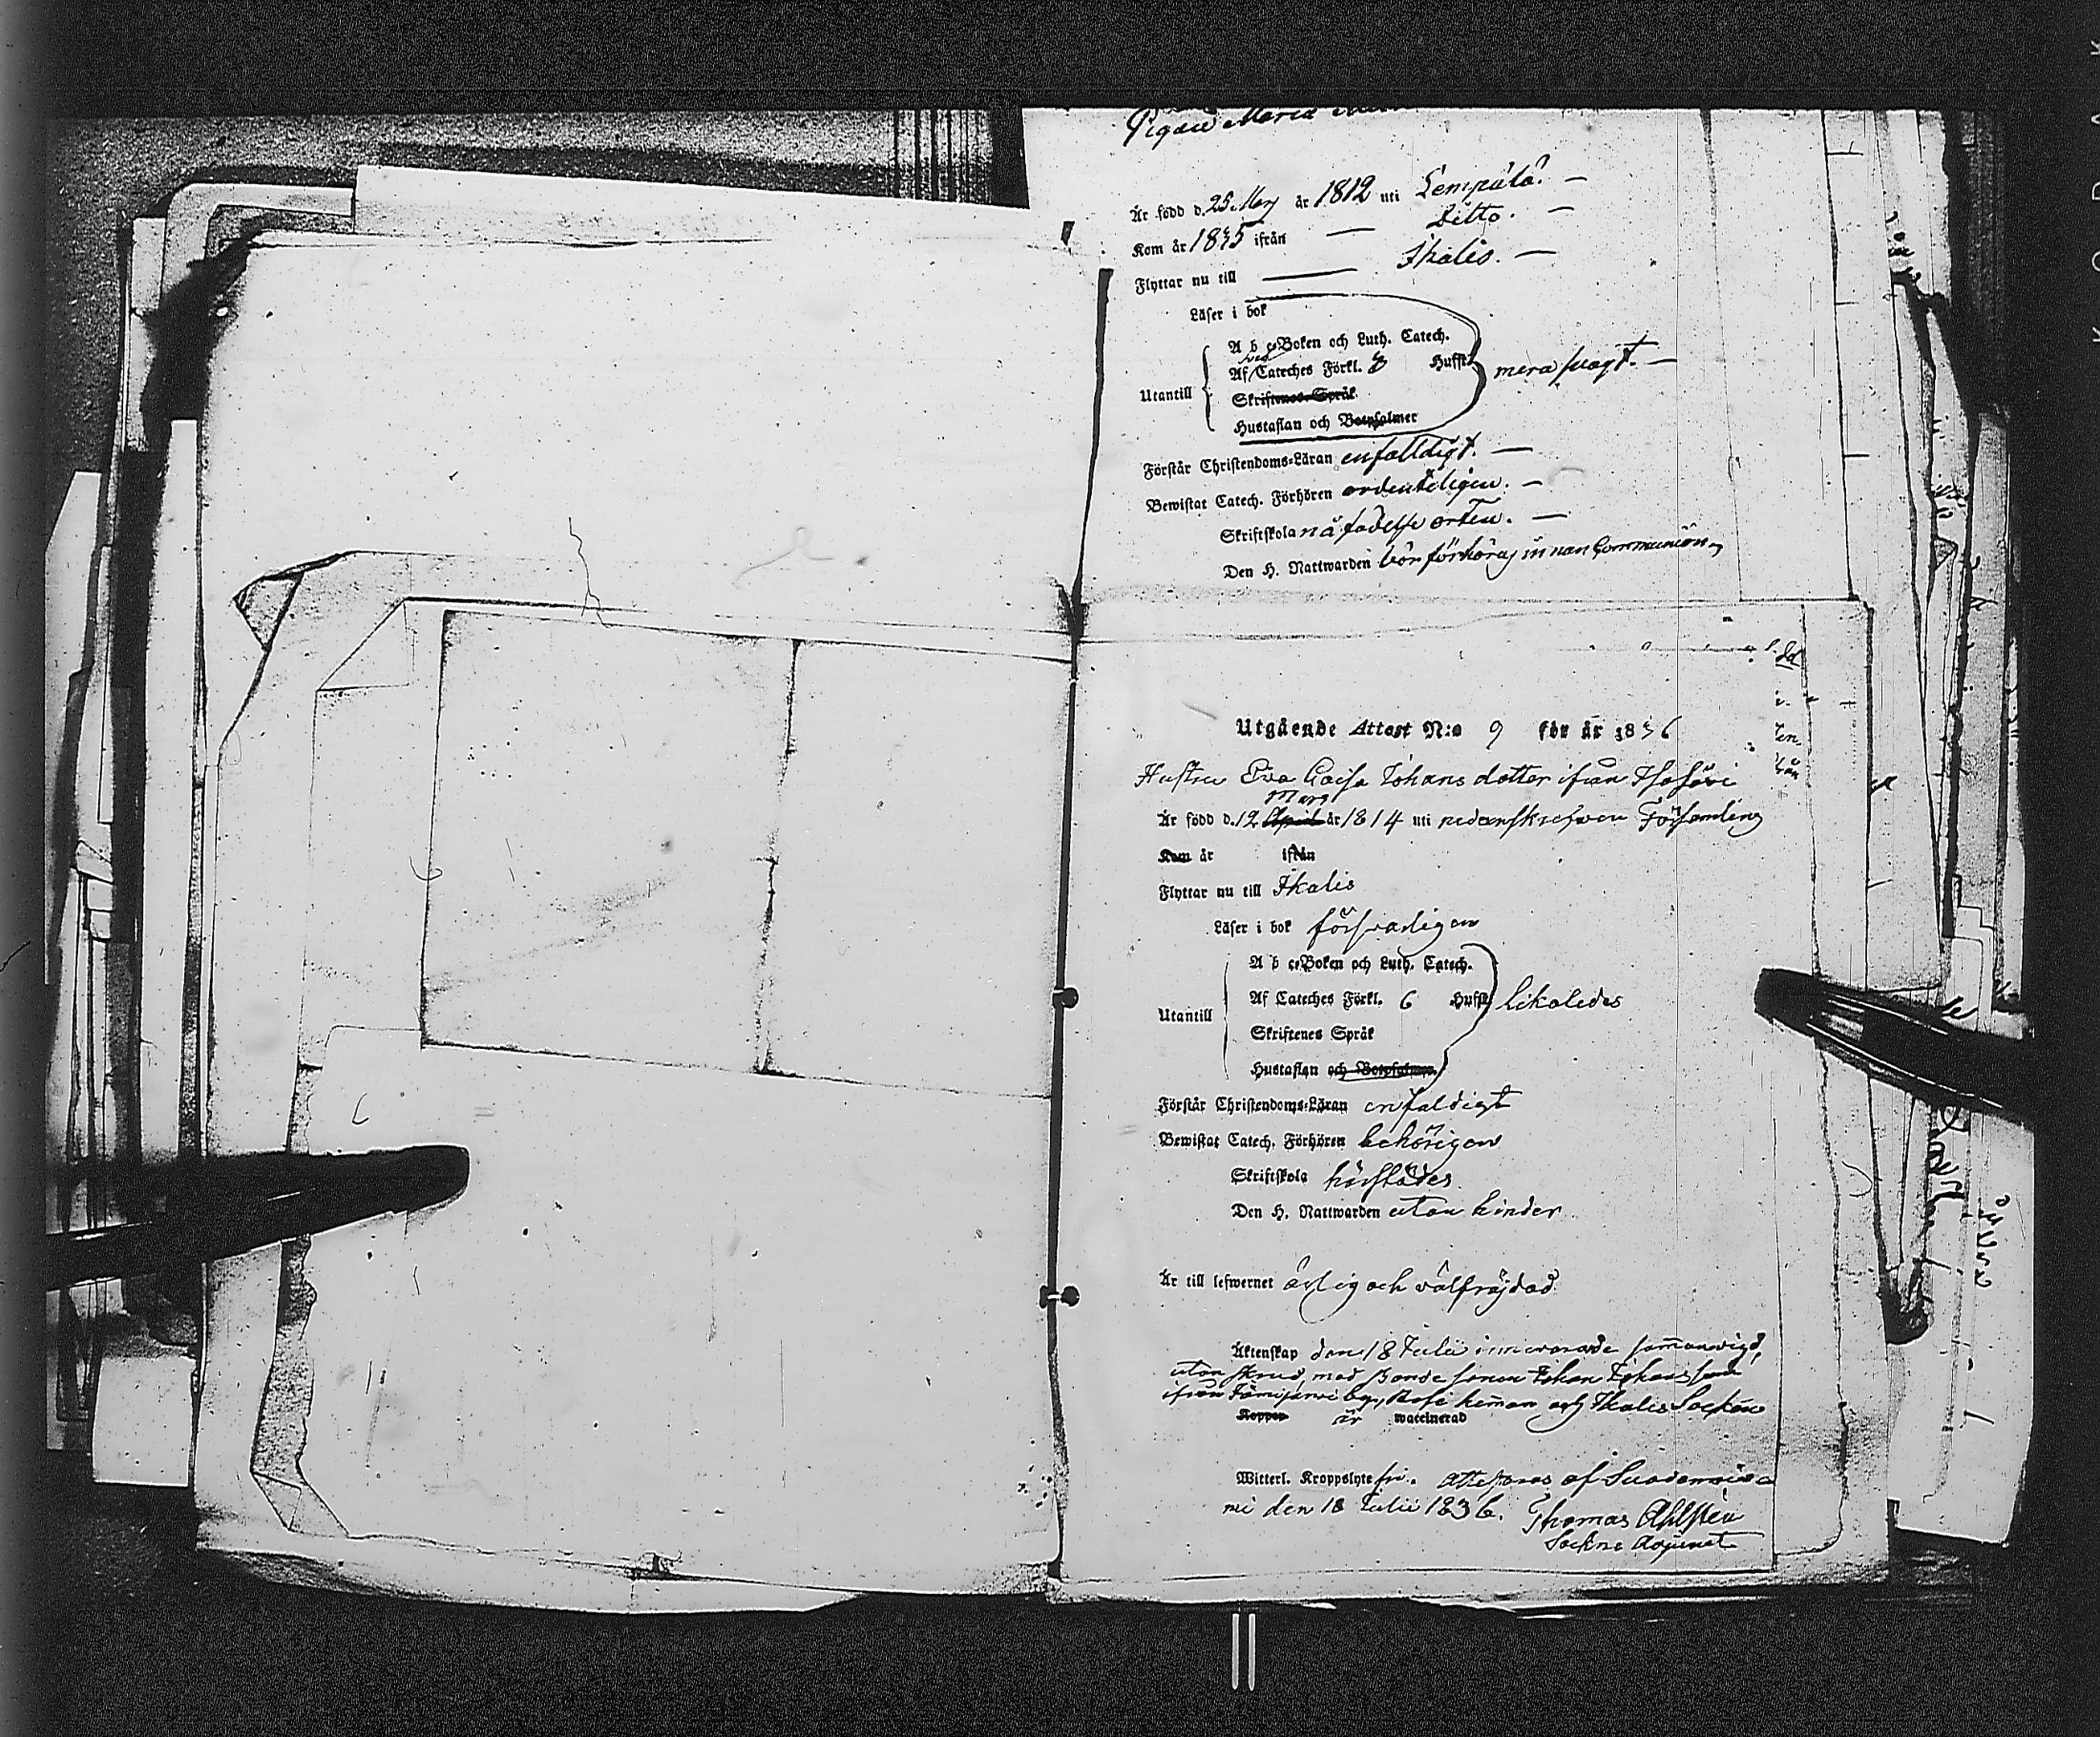 Pigan Maria
Är född d. 25 Mars år 1812 uti Lempälä. —
Kom år 1835 ifrån — Ditto. —
Flyttar nu till — Ikalis. —
Läser i bok
A b c-Boken och Luth. Catech.
Af Cateches Förkl. Hufst. mera svagt. —
Utantill
Skriftenes Språk
Hustaflan och Botpsalmer
Förstår Christendoms-Läran enfalldigt. —
Bewistat Catech. Förhören ordenteligen. —
Skriftskola å födelse orten. —
Den H. Nattwarden bör förhöras innan Communion.
Utgående Attest N:o 9 för år 1836
Hustru Eva Caisa Johans dotter ifrån
Mars
Är född d. 12 April år 1814 uti nedanskrefven Församling
Kom år ifrån
Flyttar nu till Ikalis
Läser i bok försvarligen
A b c-Boken och Luth. Catech.
Af Cateches Förkl. 6 Hufst. likaledes
Utantill
Skriftenes Språk
Hustaflan och Botpsalmer.
Förstår Christendoms-Läran enfaldigt
Bewistat Catech. Förhören behörigen
Skriftskola härstädes
Den H. Nattwarden utan hinder
Är till lefwernet ärlig och välfräjdad
Äktenskap den 18 Julii innevarande sammanvigd,
utan skrud, med Bonde sonen Johan Johansson
ifrån Jämijärvi by, hemman och Ikalis Socken
Koppor är waccinerad
Witterl. Kroppslyte fri. Attesteras af Suodennie-
mi den 18 Julii 1836. Thomas Ahlsten
Sockne Adjunct